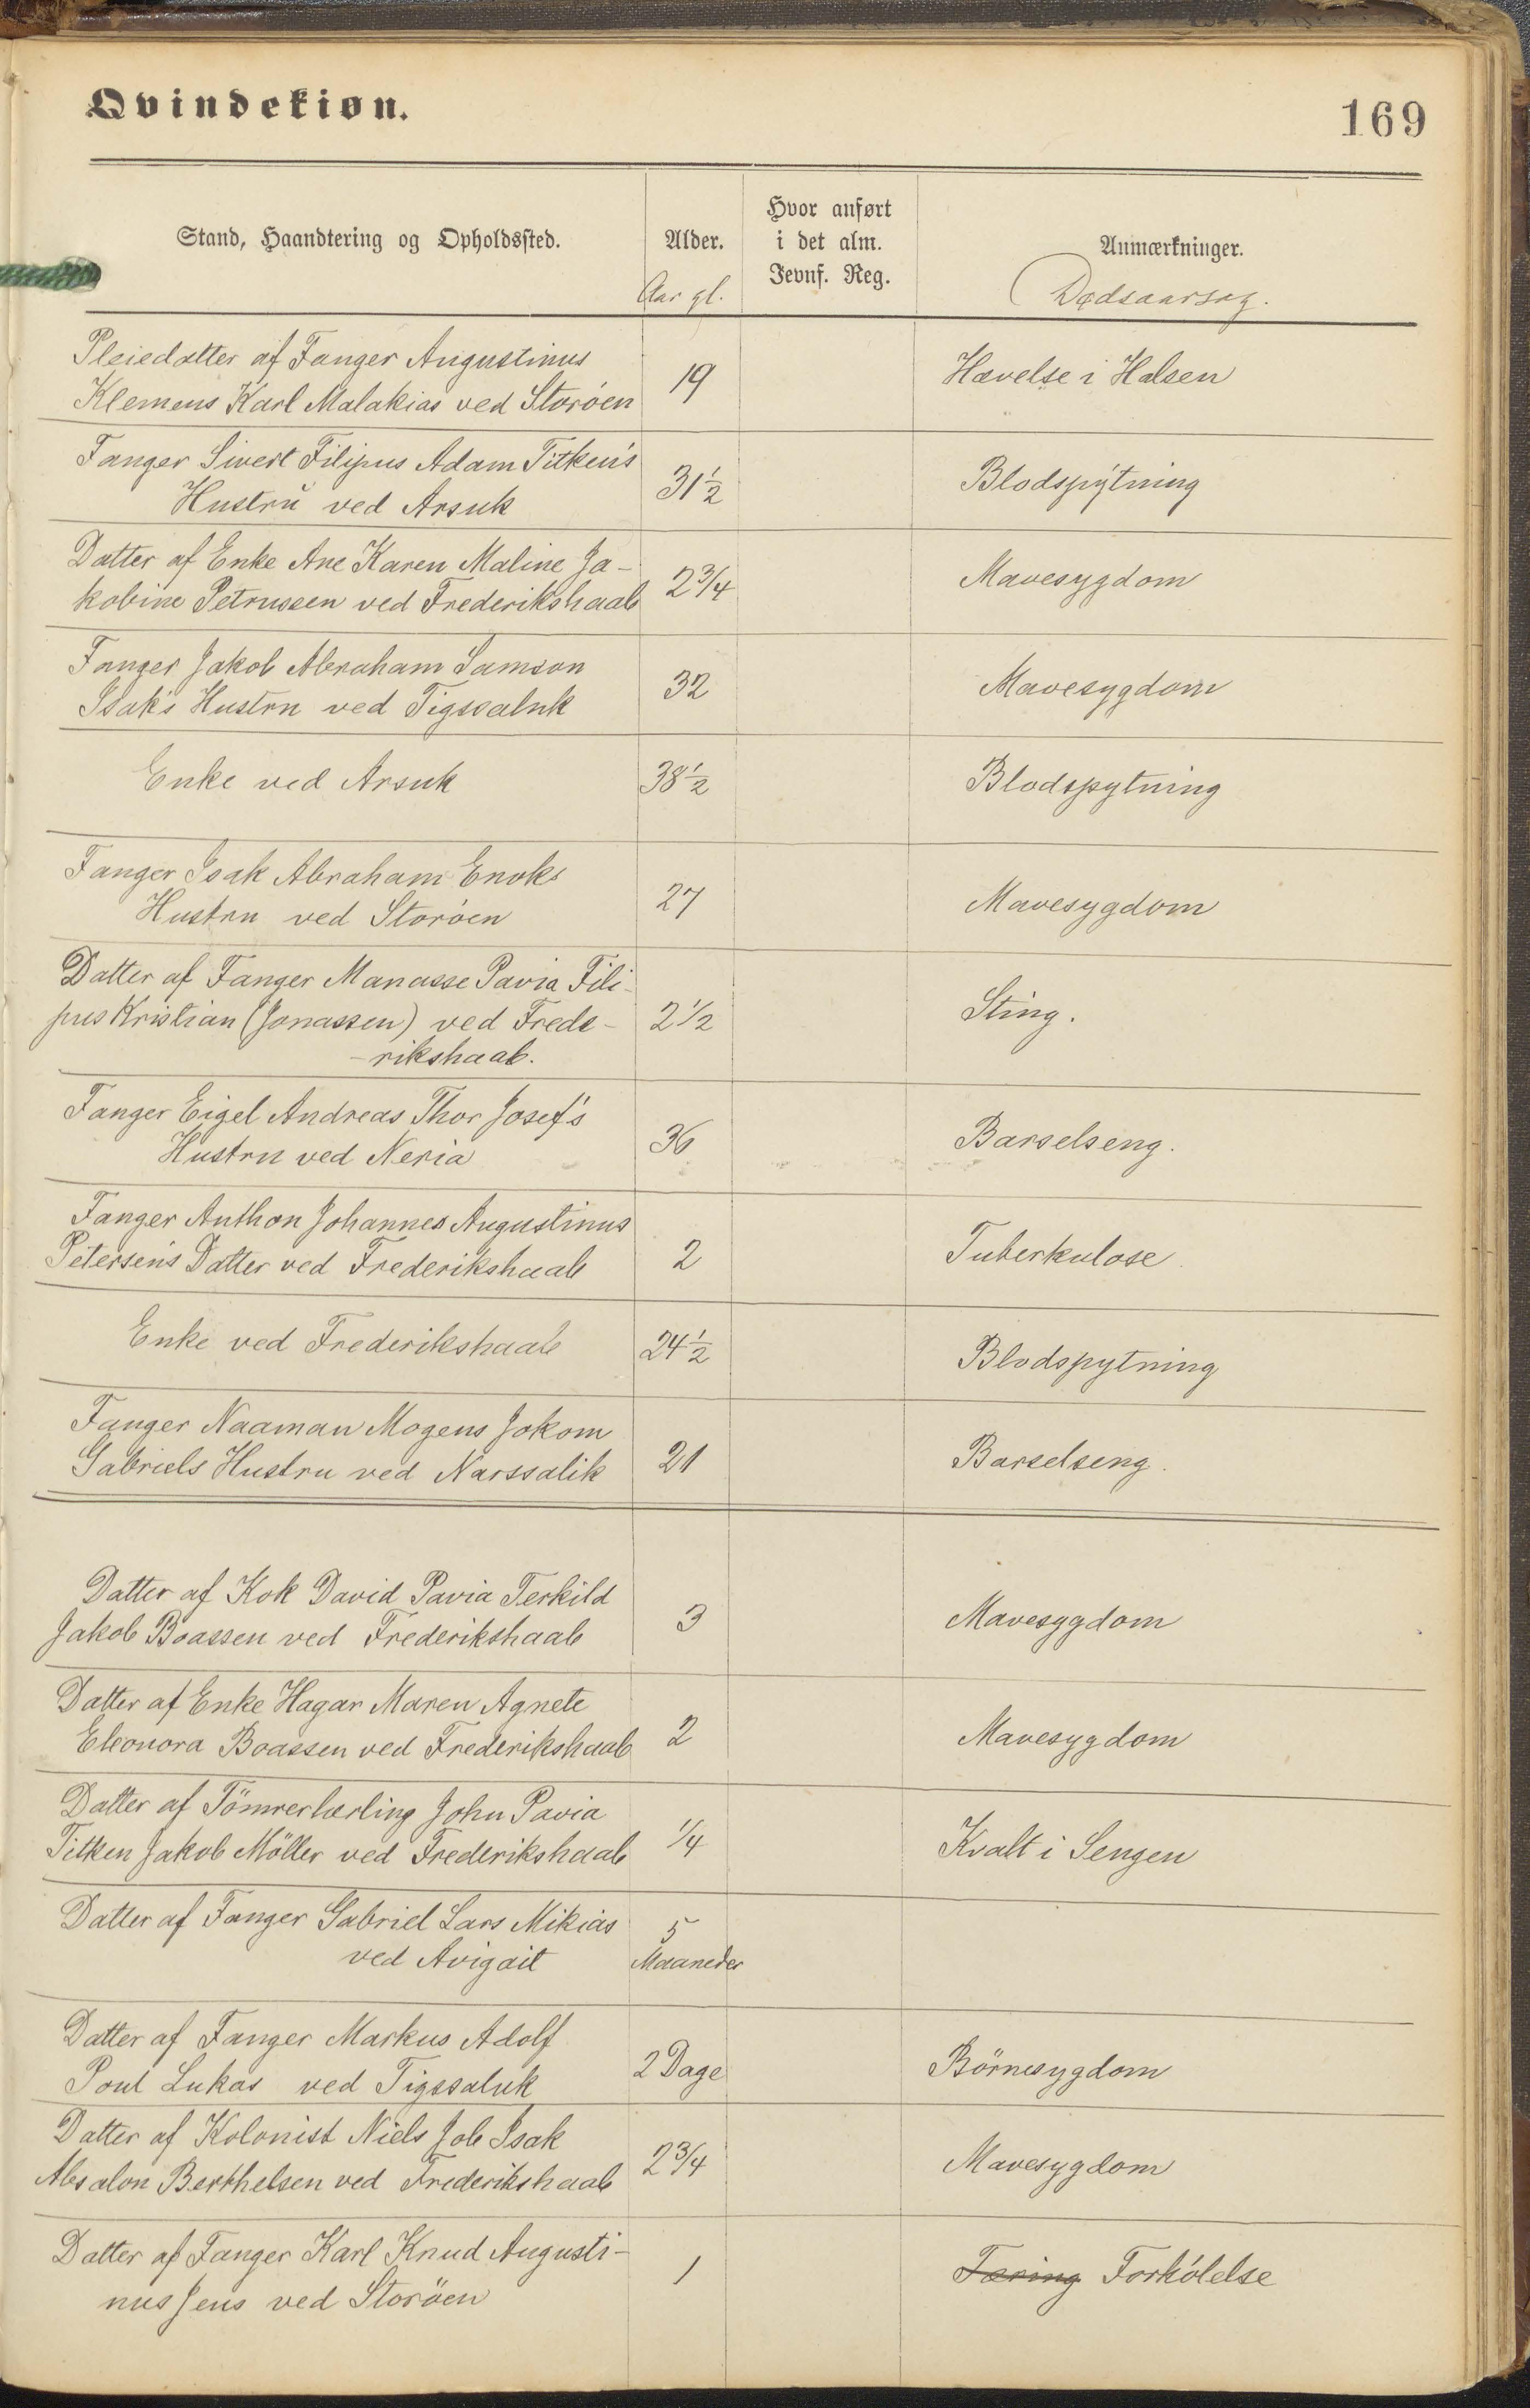 Qvindekiøn.
169
Stand, Haandtering og Opholdssted.
Alder.
Aar gl.
Hvor anført
i det alm.
Jevnf. Reg.
Anmærkninger.
Dødsaarsag.
Pleiedatter af Fanger Augustinus
Klemens Karl Malakias ved Storöen
19
Hævelse i Halsen
Fanger Sivert Filipus Adam Titken's
Hustru ved Arsuk
31 1/2
Blodspytning
Datter af Enke Ane Karen Maline Ja-
kobine Petrussen ved Frederikshaab
2 3/4
Mavesygdom
Fanger Jakob Abraham Samson
Isak's Hustru ved Tigssaluk
32
Mavesygdom
Enke ved Arsuk
38 1/2
Blodspytning
Fanger Isak Abraham Enoks
Hustru ved Storöen
27
Mavesygdom
Datter af Fanger Manasse Pavia Fili-
pus Kristian (Jonassen) ved Frede-
-rikshaab.
2 1/2
Sting.
Fanger Eigel Andreas Thor Josef's
Hustru ved Neria
36
Barselseng.
Fanger Anthon Johannes Augustinus
Petersen's Datter ved Frederikshaab
2
Tuberkulose
Enke ved Frederikshaab
24 1/2
Blodspytning
Fanger Naaman Mogens Jokom
Gabriels Hustru ved Narssalik
21
Barselseng.
Datter af Kok David Pavia Terkild
Jakob Boassen ved Frederikshaab
3
Mavesygdom
Datter af Enke Hagar Maren Agnete
Eleonora Boassen ved Frederikshaab
2
Mavesygdom
Datter af Tömrerlærling John Pavia
Titken Jakob Möller ved Frederikshaab
1/4
Kvalt i Sengen
Datter af Fanger Gabriel Lars Mikias
ved Avigait
5
Maaneder
Datter af Fanger Markus Adolf
Poul Lukas ved Tigssaluk
2 Dage
Börnesygdom
Datter af Kolonist Niels Job Isak
Absalon Berthelsen ved Frederikshaab
2 3/4
Mavesygdom
Datter af Fanger Karl Knud Augusti-
nus Jens ved Storöen
1
Tæring Forkölelse